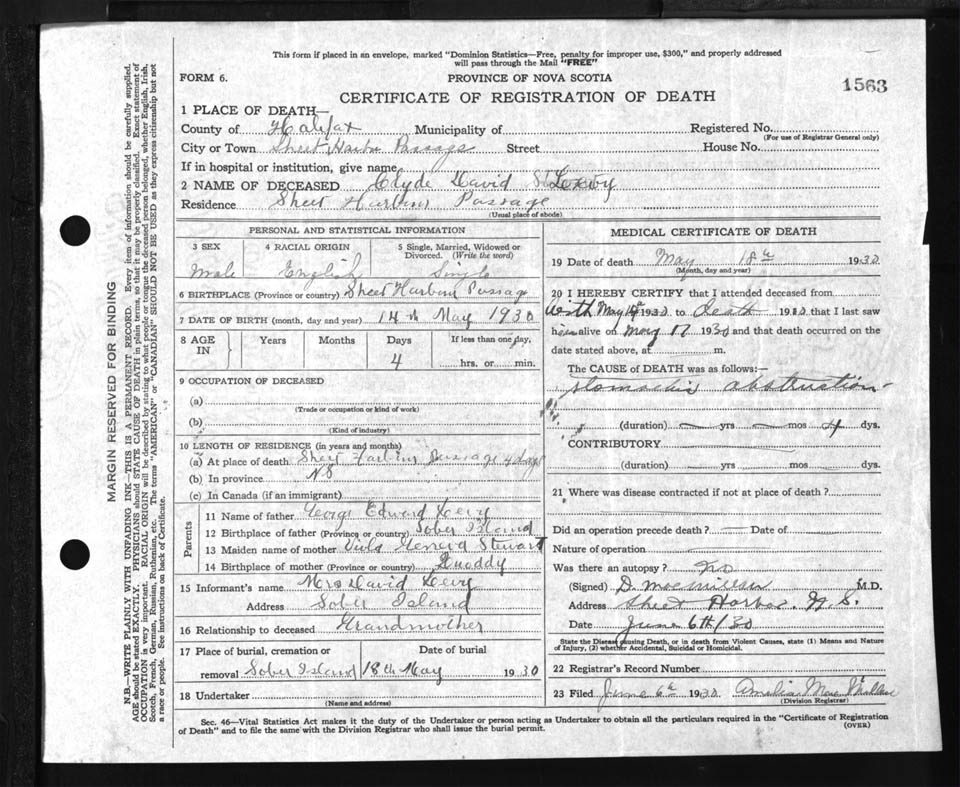 This form if placed in an envelope, marked "Dominion Statistics—Free, penalty for improper use, $300," and properly addressed
will pass through the Mail "FREE"
FORM 6.
PROVINCE OF NOVA SCOTIA
1563
CERTIFICATE OF REGISTRATION OF DEATH
1 PLACE OF DEATH—
County of Halifax Municipality of Registered No.
(For use of Registrar General only)
City or Town Sheet Harbor Passage Street House No.
If in hospital or institution, give name
2 NAME OF DECEASED Clyde David Levy
Residence Sheet Harbour Passage
(Usual place of abode)
PERSONAL AND STATISTICAL INFORMATION
3 SEX 4 RACIAL ORIGIN 5 Single, Married, Widowed or
Divorced. (Write the word)
Male English Single
6 BIRTHPLACE (Province or country) Sheet Harbour Passage
7 DATE OF BIRTH (month, day and year) 14th May 1930
8 AGE IN Years Months Days If less than one day,
4 hrs. or min.
9 OCCUPATION OF DECEASED
(a)
(Trade or occupation or kind of work)
(b)
(Kind of industry)
10 LENGTH OF RESIDENCE (in years and months)
(a) At place of death Sheet Harbour Passage 4 days
(b) In province NS
(c) In Canada (if an immigrant)
Parents
11 Name of father George Edward Levy
12 Birthplace of father (Province or country) Sober Island
13 Maiden name of mother Stewart
14 Birthplace of mother (Province or country) Quoddy
15 Informant's name Mrs David Levy
Address Sober Island
16 Relationship to deceased Grandmother
17 Place of burial, cremation or Date of burial
removal Sober Island 18th May 1930
18 Undertaker
(Name and address)
MEDICAL CERTIFICATE OF DEATH
19 Date of death May 18th 1930
(Month, day and year)
20 I HEREBY CERTIFY that I attended deceased from
birth May 14 1930 to death 1930 that I last saw
him alive on May 17 1930 and that death occurred on the
date stated above, at m.
The CAUSE of DEATH was as follows:—
obstruction
(duration) yrs mos 4 dys.
CONTRIBUTORY
(duration) yrs mos dys.
21 Where was disease contracted if not at place of death?
Did an operation precede death? Date of
Nature of operation
Was there an autopsy? No
(Signed) D. M.D.
Address Sheet Harbor, N.S.
Date June 6th/30
State the Disease causing Death, or in death from Violent Causes, state (1) Means and Nature
of Injury, (2) whether Accidental, Suicidal or Homicidal.
22 Registrar's Record Number
23 Filed June 6th 1930
(Division Registrar)
Sec. 46—Vital Statistics Act makes it the duty of the Undertaker or person acting as Undertaker to obtain all the particulars required in the "Certificate of Registration
of Death" and to file the same with the Division Registrar who shall issue the burial permit.
(OVER)
MARGIN RESERVED FOR BINDING
N.B.—WRITE PLAINLY WITH UNFADING INK—THIS IS A PERMANENT RECORD. Every item of information should be carefully supplied.
AGE should be stated EXACTLY. PHYSICIANS should STATE CAUSE OF DEATH in plain terms, so that it may be properly classified. Exact statement of
OCCUPATION is very important. RACIAL ORIGIN will be described by stating to what people or tongue the deceased person belonged, whether English, Irish,
Scotch, French, German, Russian, Ruthenian, etc. The terms "AMERICAN" or "CANADIAN" SHOULD NOT BE USED as they express citizenship but not
a race or people. See instructions on back of Certificate.